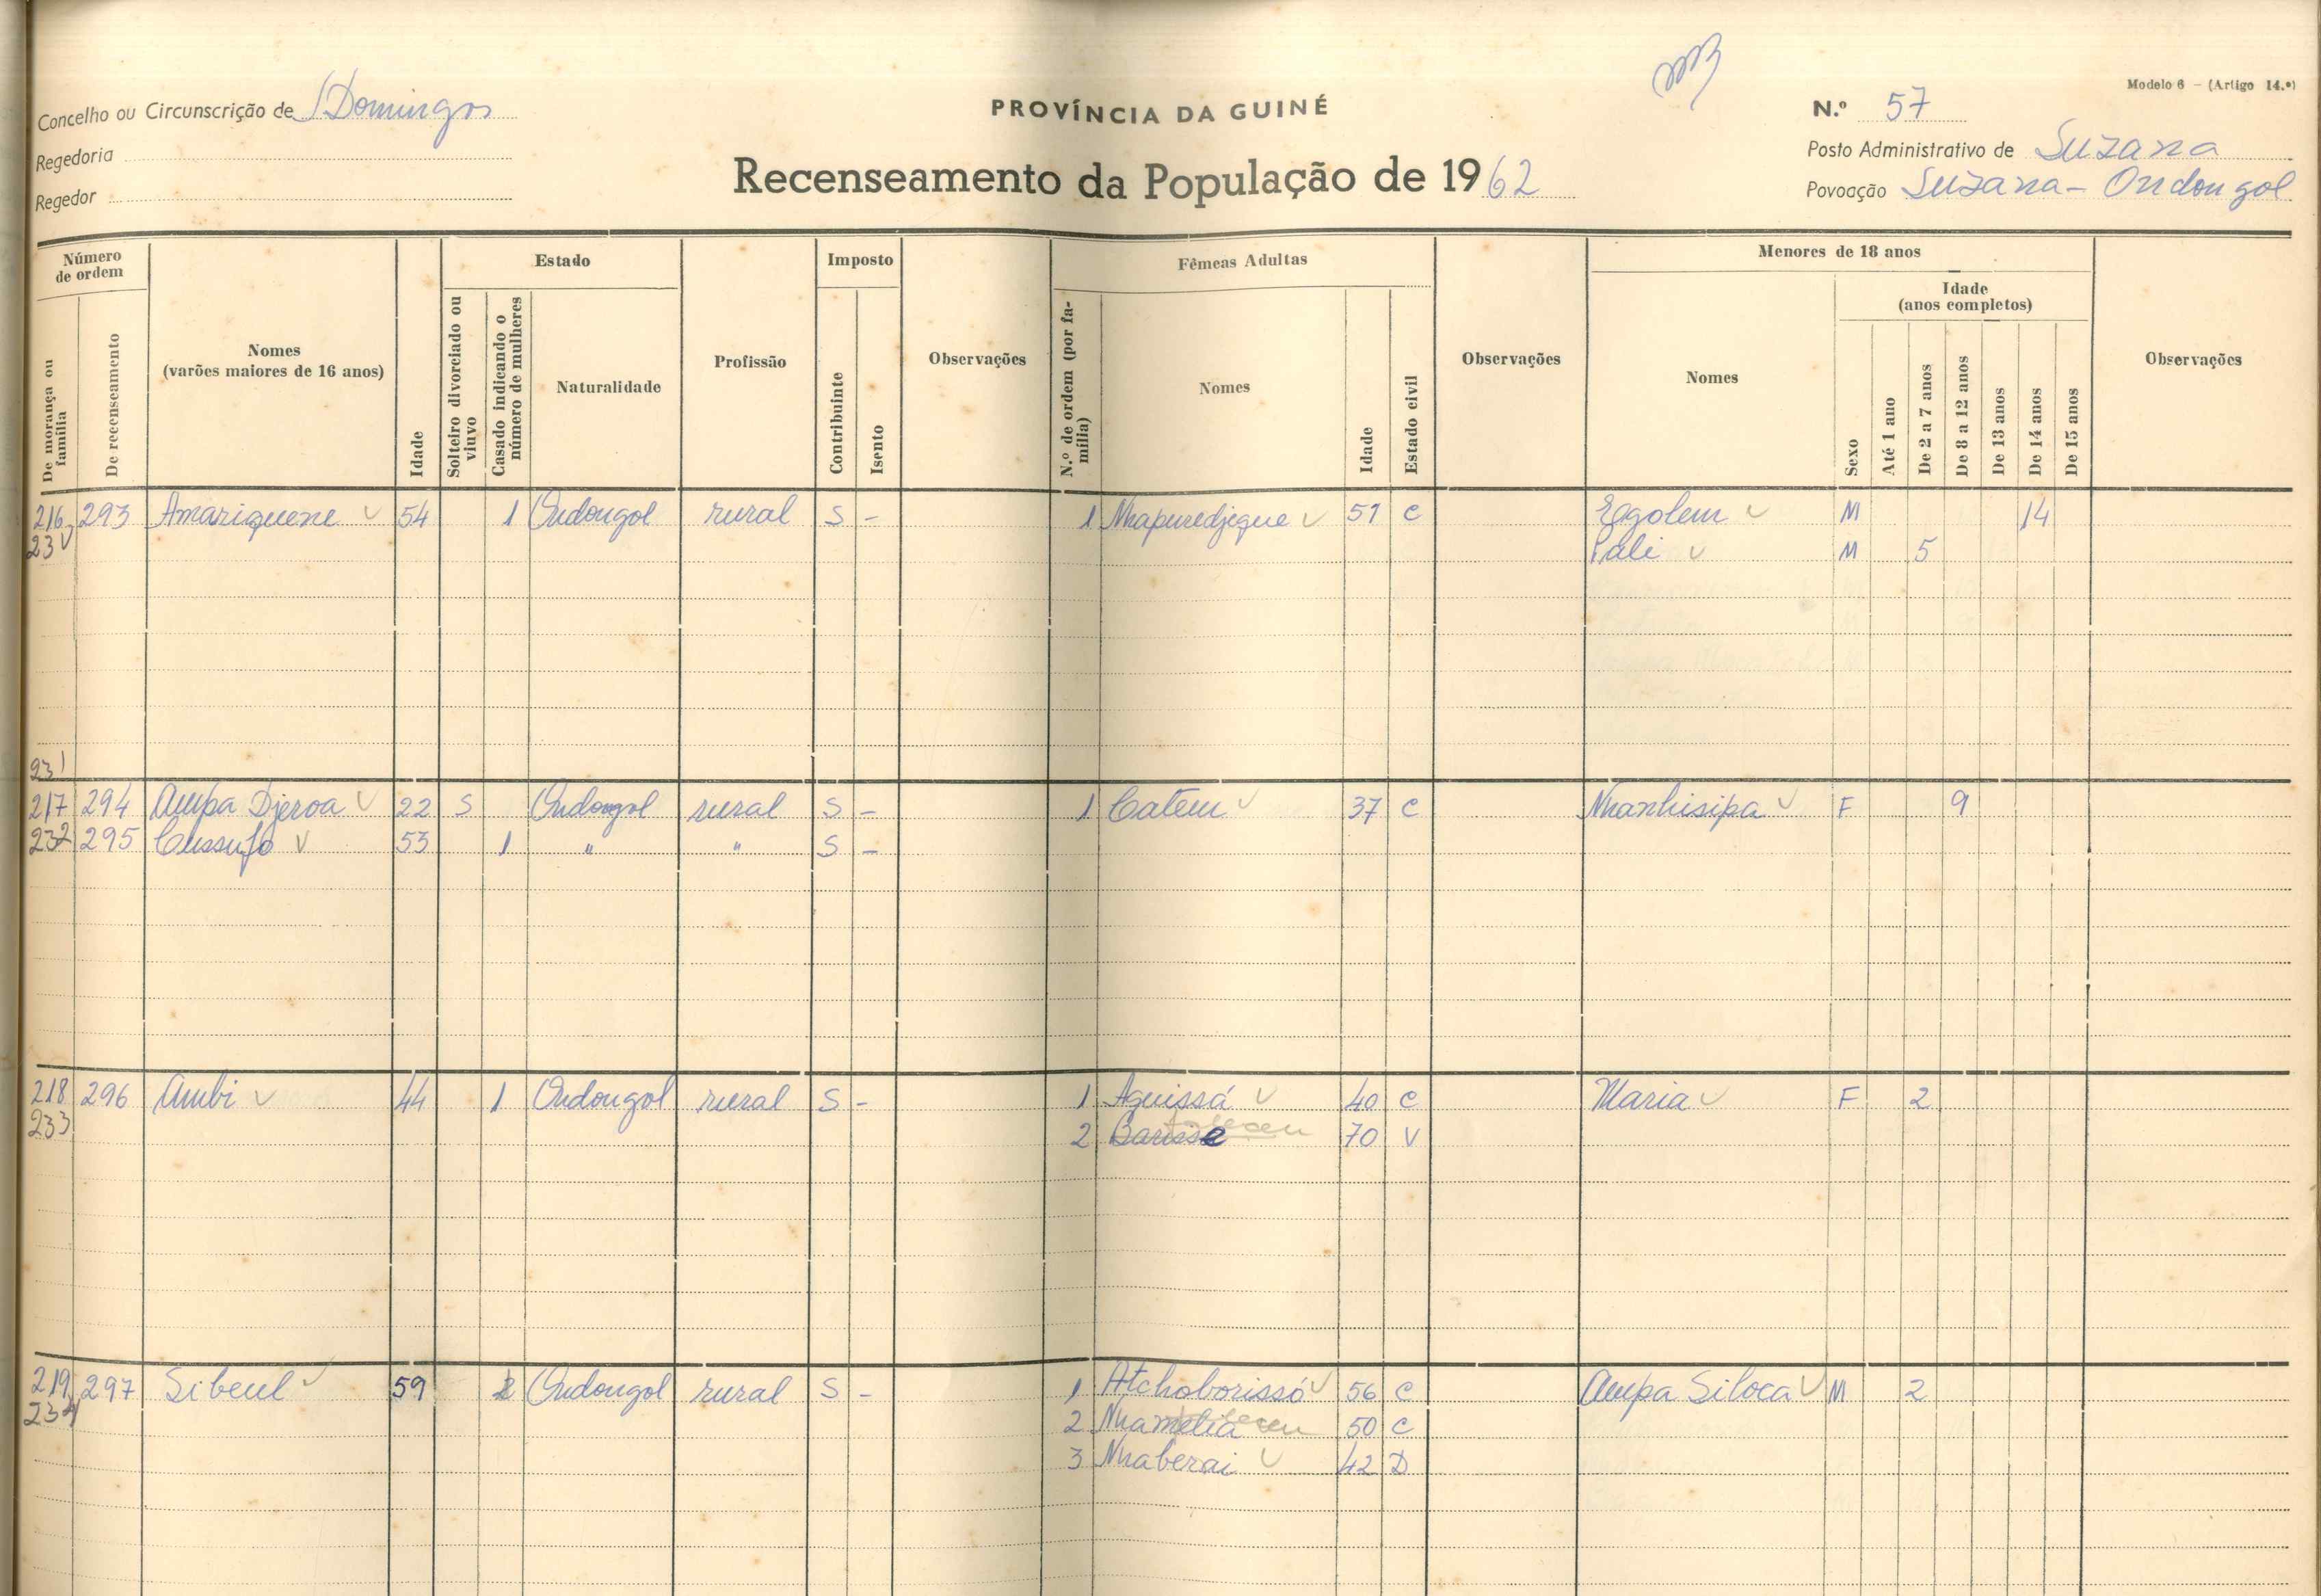 Modelo 6 - (Artigo 14.º)
Concelho ou Circunscrição de S Domingos
PROVÍNCIA DA GUINÉ
N.º 57
Regedoria
Recenseamento da População de 1962
Posto Administrativo de Suzana
Regedor
Povoação Suzana - Ondongol
Número de ordem
De morança ou família
De recenseamento
Nomes (varões maiores de 16 anos)
Idade
Estado
Solteiro divorciado ou viuvo
Casado indicando o número de mulheres
Naturalidade
Profissão
Imposto
Contribuinte
Isento
Observações
Fêmeas Adultas
N.º de ordem (por família)
Nomes
Idade
Estado civil
Observações
Menores de 18 anos
Nomes
Sexo
Idade (anos completos)
Até 1 ano
De 2 a 7 anos
De 8 a 12 anos
De 13 anos
De 14 anos
De 15 anos
Observações
216 293 Amariquene 54 1 Ondongol rural S - 1 Nhapuredjeque 51 C Egolem M 14
23 Pali M 5
231
217 294 Ampa Djeroa 22 S Ondongol rural S - 1 Catem 37 C Nhanhisipa F 9
232 295 Cussufo 53 1 " " S -
218 296 Ambi 44 1 Ondongol rural S - 1 Aguissá 40 C Maria F 2
233 2 Barisse faleceu 70 V
219 297 Sibeul 59 2 Ondongol rural S - 1 Atchoborissó 56 C Ampa Siloca M 2
234 2 Nhamelia faleceu 50 C
3 Nhaberai 42 D